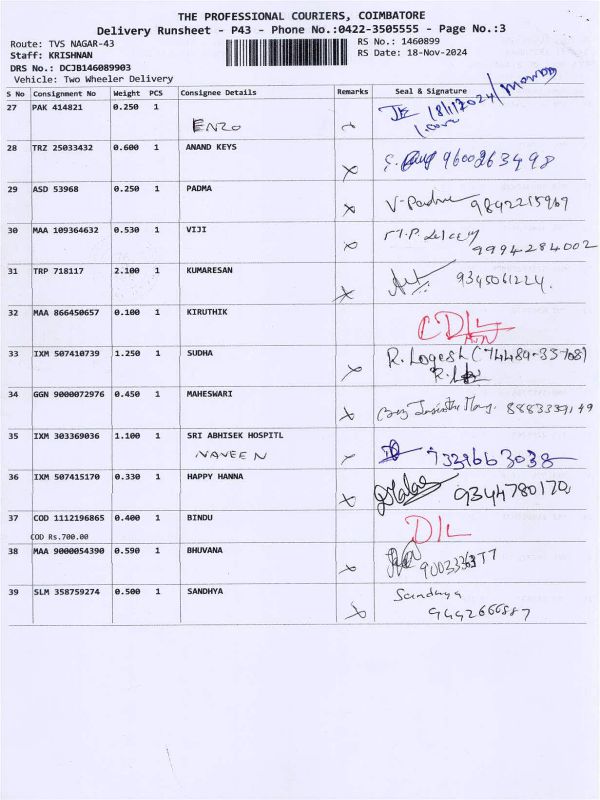 THE PROFESSIONAL COURIERS, COIMBATORE
Delivery Runsheet - P43 - Phone No.:0422-3505555 - Page No.:3
Route: TVS NAGAR-43 RS No.: 1460899
Staff: KRISHNAN RS Date: 18-Nov-2024
DRS No.: DCJB146089903
Vehicle: Two Wheeler Delivery
S No Consignment No Weight PCS Consignee Details Remarks Seal & Signature
27 PAK 414821 0.250 1 18/11/2024/
ENZO
28 TRZ 25033432 0.600 1 ANAND KEYS 9600263498
29 ASD 53968 0.250 1 PADMA V-Padma 9842215969
30 MAA 109364632 0.530 1 VIJI 9994284002
31 TRP 718117 2.100 1 KUMARESAN 9345061224
32 MAA 866450657 0.100 1 KIRUTHIK
33 IXM 507410739 1.250 1 SUDHA R. Logesh
34 GGN 9000072976 0.450 1 MAHESWARI
35 IXM 303369036 1.100 1 SRI ABHISEK HOSPITL
NAVEEN
36 IXM 507415170 0.330 1 HAPPY HANNA 9344780170
37 COD 1112196865 0.400 1 BINDU D/L
COD Rs.700.00
38 MAA 9000054390 0.590 1 BHUVANA
39 SLM 358759274 0.500 1 SANDHYA Sandhya
9442666887